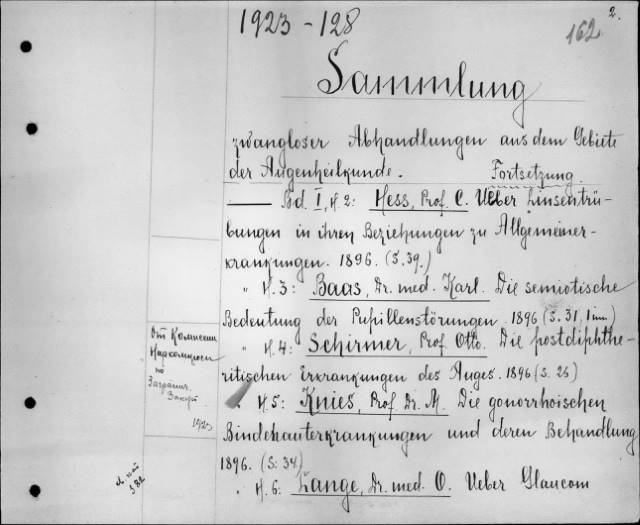 1923-128
162 2.
Sammlung
zwangloser Abhandlungen aus dem Gebiete
der Augenheilkunde. Fortsetzung.
—— Bd. I, H. 2: Hess, Prof. C. Ueber Linsentrü-
bungen in ihren Beziehungen zu Allgemeiner-
krankungen. 1896. (S. 39.)
" H. 3: Baas, Dr. med. Karl. Die semiotische
Bedeutung der Pupillenstörungen. 1896 (S. 31, 1 im.)
" H. 4: Schirmer, Prof. Otto. Die postdiphthe-
ritischen Erkrankungen des Auges. 1896 (S. 25)
" H. 5: Knies, Prof. Dr. M. Die gonorrhoischen
Bindehauterkrankungen und deren Behandlung
1896. (S. 34)
" H. 6: Lange, Dr. med. O. Ueber Glaucom
От Комиссии
по
Загранич.
Закуп
1923